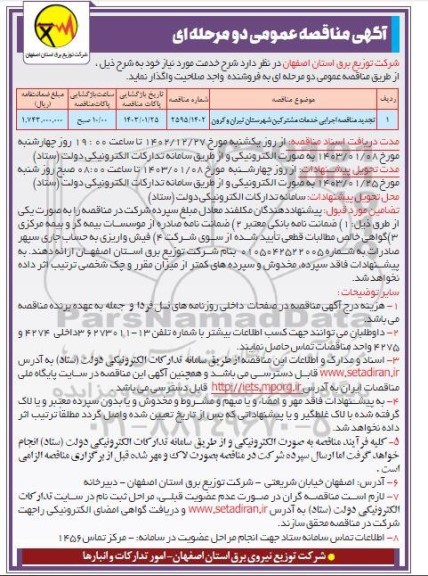 آگهی مناقصه عمومی دو مرحله ای
شرکت توزیع برق استان اصفهان
شرکت توزیع برق استان اصفهان در نظر دارد شرح خدمت مورد نیاز خود به شرح ذیل ،
از طریق مناقصه عمومی دو مرحله ای به فروشنده واجد صلاحیت واگذار نماید.
ردیف موضوع مناقصه شماره مناقصه تاریخ بازگشایی پاکات مناقصه ساعت بازگشایی پاکات مناقصه مبلغ ضمانتنامه (ریال)
۱ تجدید مناقصه اجرایی خدمات مشترکین شهرستان تیران و کرون ۲۵۹۵/۱۴۰۲ ۱۴۰۳/۰۱/۲۵ ۱۰/۰۰ صبح ۱,۷۴۳,۰۰۰,۰۰۰
مدت دریافت اسناد مناقصه: از روز یکشنبه مورخ ۱۴۰۲/۱۲/۲۷ تا ساعت ۱۹:۰۰ روز چهارشنبه
مورخ ۱۴۰۳/۰۱/۰۸ به صورت الکترونیکی و از طریق سامانه تدارکات الکترونیکی دولت (ستاد)
مدت تحویل پیشنهادات: از روز چهارشنبه مورخ ۱۴۰۳/۰۱/۰۸ تا ساعت ۰۸:۰۰ صبح روز شنبه
مورخ ۱۴۰۳/۰۱/۲۵ به صورت الکترونیکی و از طریق سامانه تدارکات الکترونیکی دولت (ستاد)
محل تحویل پیشنهادات: سامانه تدارکات الکترونیکی دولت (ستاد)
تضامین مورد قبول: پیشنهاددهندگان مکلفند معادل مبلغ سپرده شرکت در مناقصه را به صورت یکی
از طرق ذیل: ۱) ضمانت نامه بانکی معتبر ۲) ضمانت نامه صادره از موسسات بیمه گر و بیمه مرکزی
۳) گواهی خالص مطالبات قطعی تایید شده از سوی شرکت ۴) فیش واریزی به حساب جاری سپهر
صادرات به شماره بنام شرکت توزیع برق استان اصفهان ارائه دهند. به
پیشنهادات فاقد سپرده، مخدوش و سپرده های کمتر از میزان مقرر و چک شخصی ترتیب اثر داده
نخواهد شد.
سایر توضیحات:
۱- هزینه درج آگهی مناقصه در صفحات داخلی روزنامه های نسل فردا و جمله به عهده برنده مناقصه
می باشد.
۲- داوطلبان می توانند جهت کسب اطلاعات بیشتر با شماره تلفن ۱۳-۳۶۲۷۳۰۱۱ داخلی ۴۲۷۴ و
۴۲۷۵ واحد مناقصات تماس حاصل نمایند.
۳- اسناد و مدارک و اطلاعات این مناقصه از طریق سامانه تدارکات الکترونیکی دولت (ستاد) به آدرس
www.setadiran.ir قابل دسترسی می باشد و همچنین آگهی این مناقصه در سایت پایگاه ملی
مناقصات ایران به آدرس http://iets.mporg.ir قابل دسترسی می باشد.
۴- به پیشنهادات فاقد مهر و امضاء و یا مبهم و مشروط و مخدوش و یا بدون سپرده معتبر و یا لاک
گرفته شده با لاک غلطگیر و یا پیشنهاداتی که پس از تاریخ تعیین شده واصل گردد مطلقا ترتیب اثر
داده نخواهد شد.
۵- کلیه فرآیند مناقصه به صورت الکترونیکی و از طریق سامانه تدارکات الکترونیکی دولت (ستاد) انجام
خواهد گرفت اما ارسال سپرده شرکت در مناقصه بصورت لاک و مهر شده قبل از برگزاری مناقصه الزامی
است.
۶- آدرس: اصفهان خیابان شریعتی - شرکت توزیع برق استان اصفهان - دبیرخانه
۷- لازم است مناقصه گران در صورت عدم عضویت قبلی، مراحل ثبت نام در سایت تدارکات
الکترونیکی دولت (ستاد) به آدرس www.setadiran.ir و دریافت گواهی امضای الکترونیکی را جهت
شرکت در مناقصه محقق سازند.
۸- اطلاعات تماس سامانه ستاد جهت انجام مراحل عضویت در سامانه: - مرکز تماس ۱۴۵۶
شرکت توزیع نیروی برق استان اصفهان- امور تدارکات و انبارها